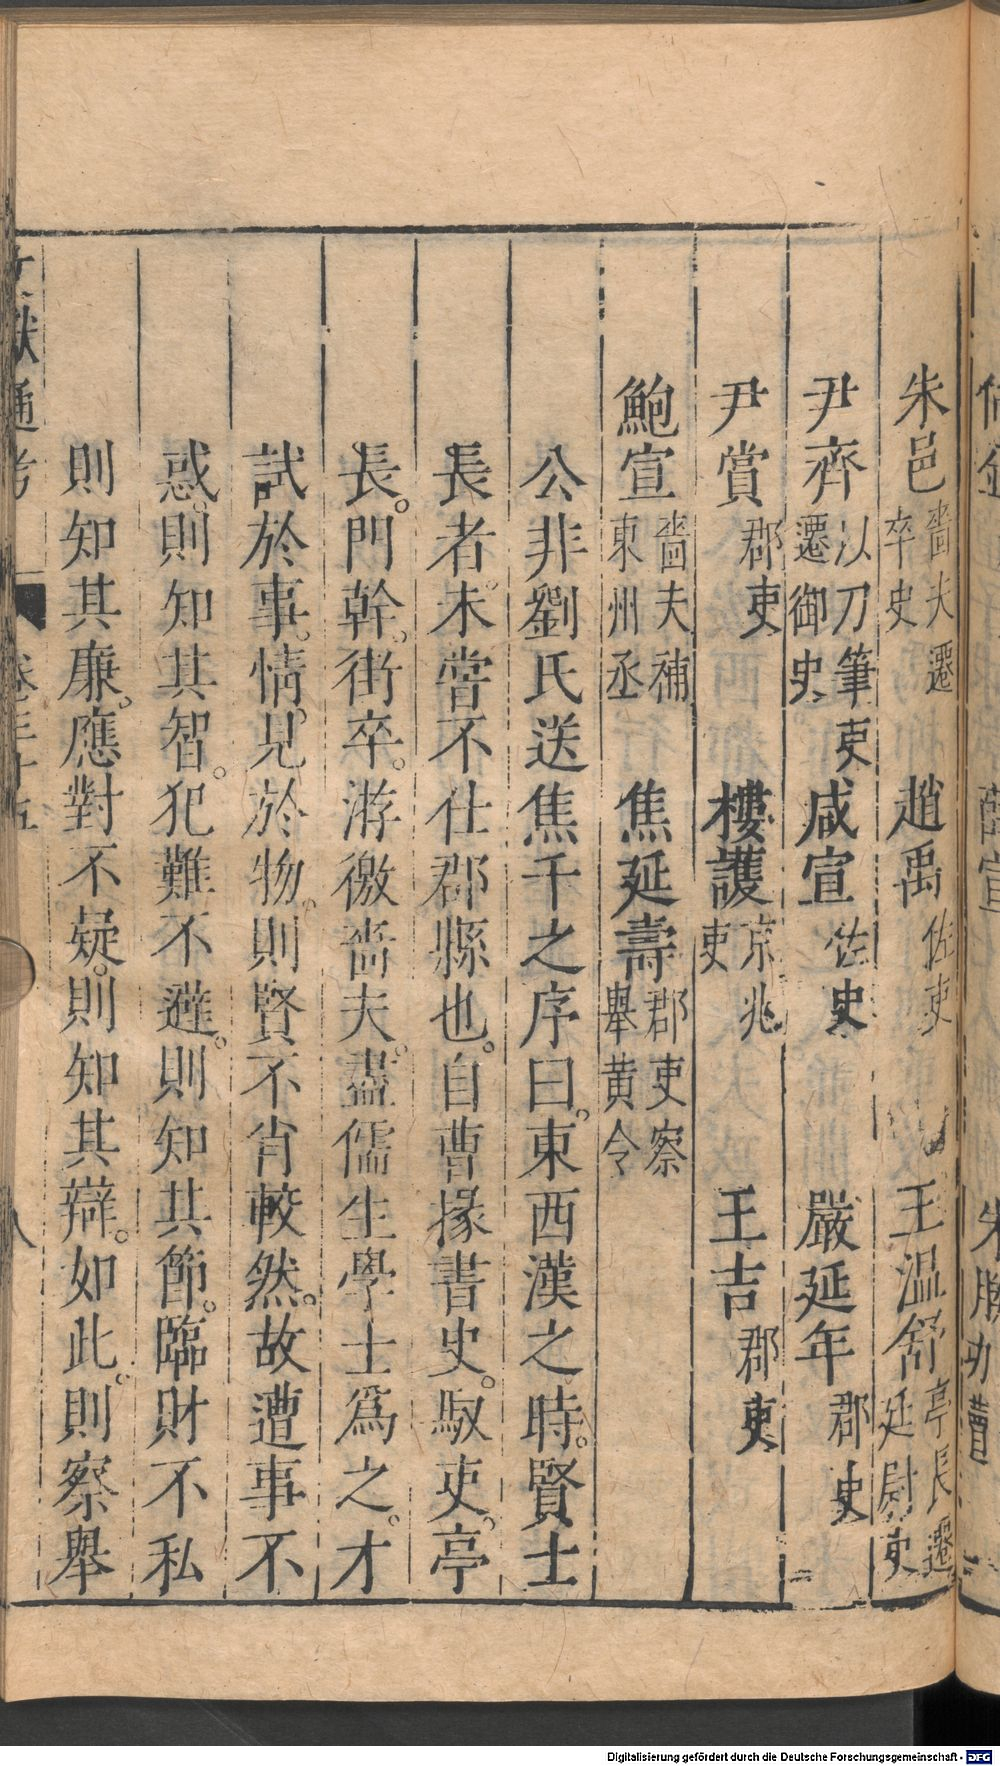 朱邑嗇夫遷卒史 趙禹佐吏 王温舒亭長遷廷尉吏
尹齊以刀筆吏遷御史 咸宣佐史 嚴延年郡史
尹賞郡吏 樓護京兆吏 王吉郡吏
鮑宣嗇夫補東州丞 焦延壽郡吏察舉黄令
公非劉氏送焦千之序曰。東西漢之時。賢士
長者。未嘗不仕郡縣也。自曹掾書史。馭吏。亭
長。門幹。街卒。游徼。嗇夫。盡儒生學士爲之。才
試於事。情見於物。則賢不肖較然。故遭事不
惑。則知其智。犯難不避。則知其節。臨財不私
則知其廉。應對不疑。則知其辯。如此。則察舉
文獻通考 卷三十五 八
Digitalisierung gefördert durch die Deutsche Forschungsgemeinschaft - DFG